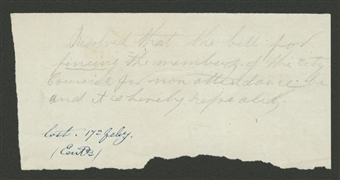 Resolved that the bill for
fining the members of the City
Council for non attendance be
and it is hereby repealed,
Lost. 17th Feby.